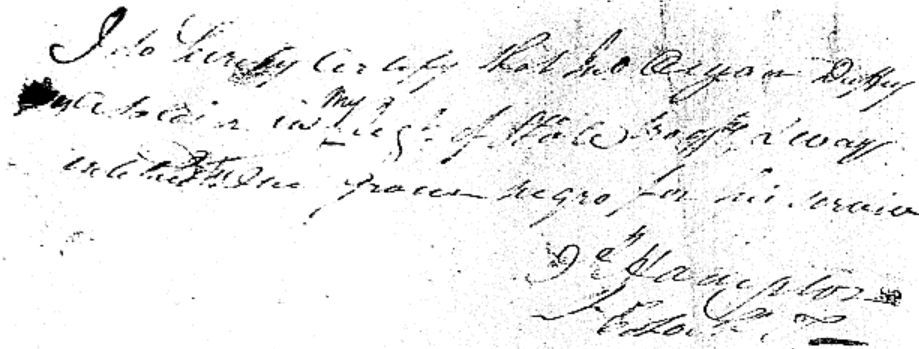 I do hereby Certify that Duffy
was a Soldier in my Regt of State troops, & was
intitled to one grown negro for his service
Hampton